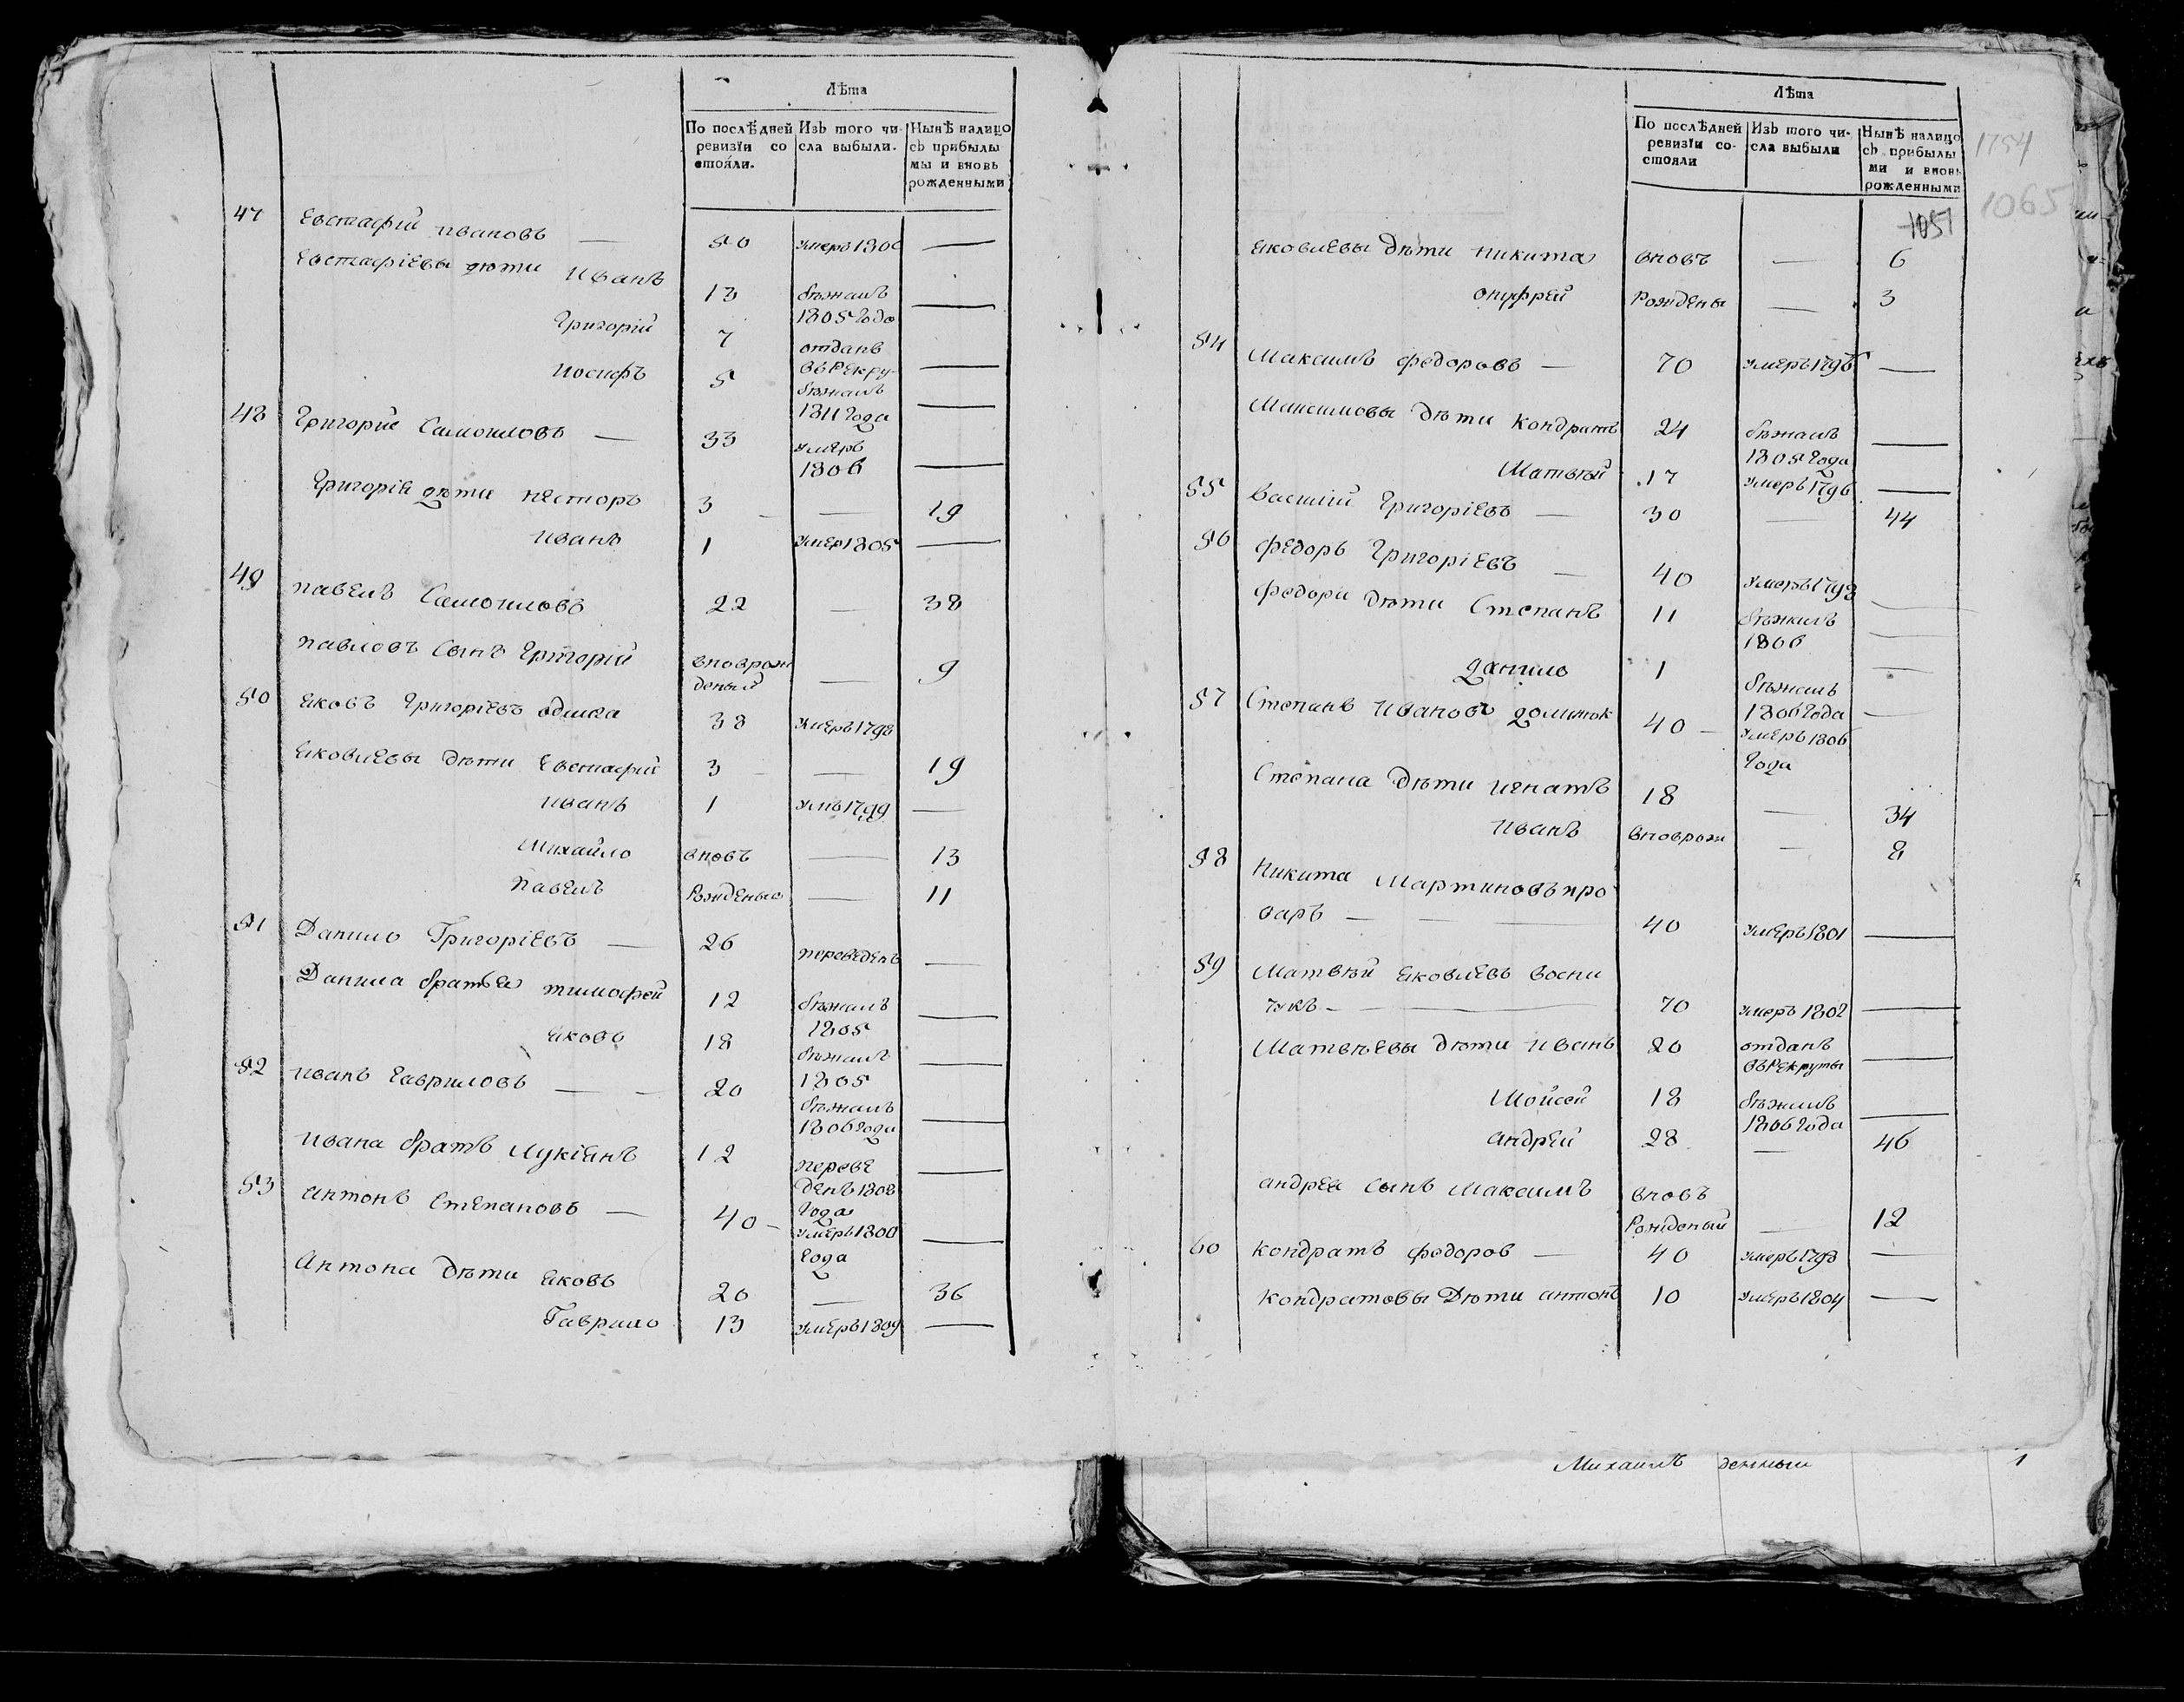 Лѣта
По послѣдней ревизїи со стояли.
Изъ того чи- сла выбыли.
Нынѣ налицо съ прибылы мы и вновь рожденными
47 Евстафий ивановъ — 50 умеръ 1800 —
Евстафіевы дѣти иванъ 13 бѣжалъ 1805 года —
Григорій 7 отданъ въ рекру- —
иосифъ 5 бѣжалъ 1811 года —
48 Григорие Самоиловъ — 33 умеръ 1806 —
Григорія дѣти несторъ 3 — 19
иванъ 1 умер 1805 —
49 павелъ Самоиловъ 22 — 38
павловъ Сынъ Григорій вноврож деный — 9
50 яковъ Григоріевъ 38 умеръ 1798
яковлевы дѣти Евстафий 3 — 19
иванъ 1 умѣ 1799 —
Михайло вновъ — 13
павелъ Рожденыя — 11
51 Данило Григоріевъ — 26 переведенъ —
Данила братья тимофей 12 бѣжалъ 1805 —
яковъ 18 бѣжалъ 1805 —
52 иванъ Гавриловъ — 20 бѣжалъ 1806 года —
ивана братъ Лукіянъ 12 переве денъ 1808 года —
53 антонъ Степановъ — 40 — умеръ 1800 года —
Антона дѣти яковъ 20 — 36
Гаврило 13 умеръ 1809 —
Лѣта
По послѣдней ревизїи со- стояли
Изъ того чи- сла выбыли
Нынѣ налицо съ прибылы ми и вновь рожденными
1754
1065
1051
яковлевы дѣти никита вновъ — 6
онуфрей Рождены — 3
54 Максимъ федоровъ — 70 умеръ 1796 —
Максимовы дѣти кондратъ 24 бѣжалъ 1805 года —
Матвѣй 17 умеръ 1796 —
55 василий Григоріевъ — 30 — 44
56 федоръ Григоріевъ — 40 умеръ 1798 —
федора дѣти Степанъ 11 бѣжалъ 1806 —
данило 1 бѣжалъ 1806 года —
57 Степанъ ивановъ 40 — умеръ 1806 года —
Степана дѣти игнатъ 18 — 34
иванъ вноврож — 8
58 никита Мартиновъ про
варъ — 40 умеръ 1801 —
59 Матвѣй яковлевъ
70 умеръ 1802 —
Матвѣевы дѣти иванъ 20 отданъ въ рекруты —
Мойсей 18 бѣжалъ 1806 года —
андрей 28 — 46
андрея Сынъ Максимъ вновъ Рожденый — 12
60 кондратъ федоров — 40 умеръ 1798 —
кондратовы Дѣти антонъ 10 умеръ 1804 —
Михаилъ денныи 1